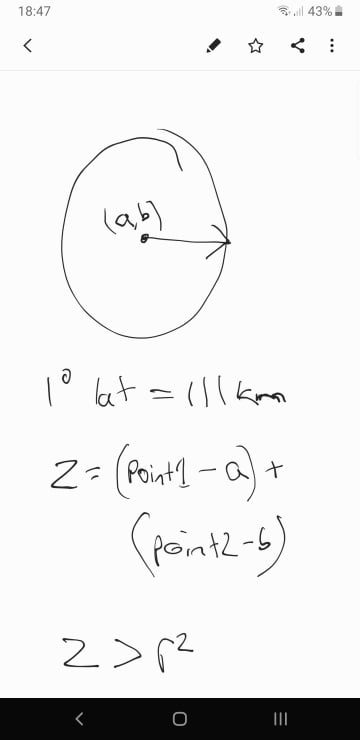 18:47 43%
(a,b)
1° lat = 111 km
Z = (Point1 - a) +
(point2 - b)
Z > r²